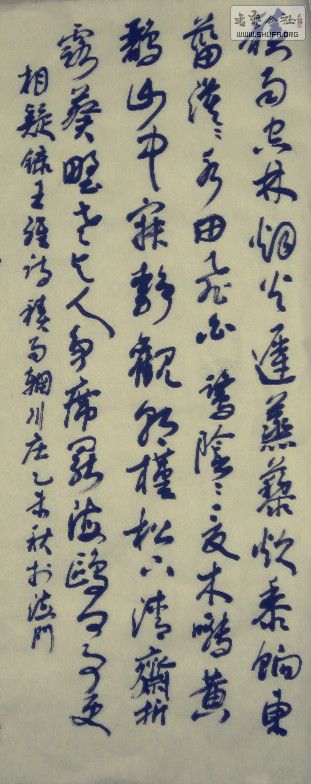 書藝公社
WWW.SHUFA.ORG
積雨空林烟火遲蒸藜炊黍餉東
菑漠〻水田飛白鷺陰〻夏木囀黄
鸝山中寂靜觀朝槿松下清齋折
露葵野老与人争席罷海鷗何事更
相疑錄王維詩積雨輞川庄乙未秋於海門